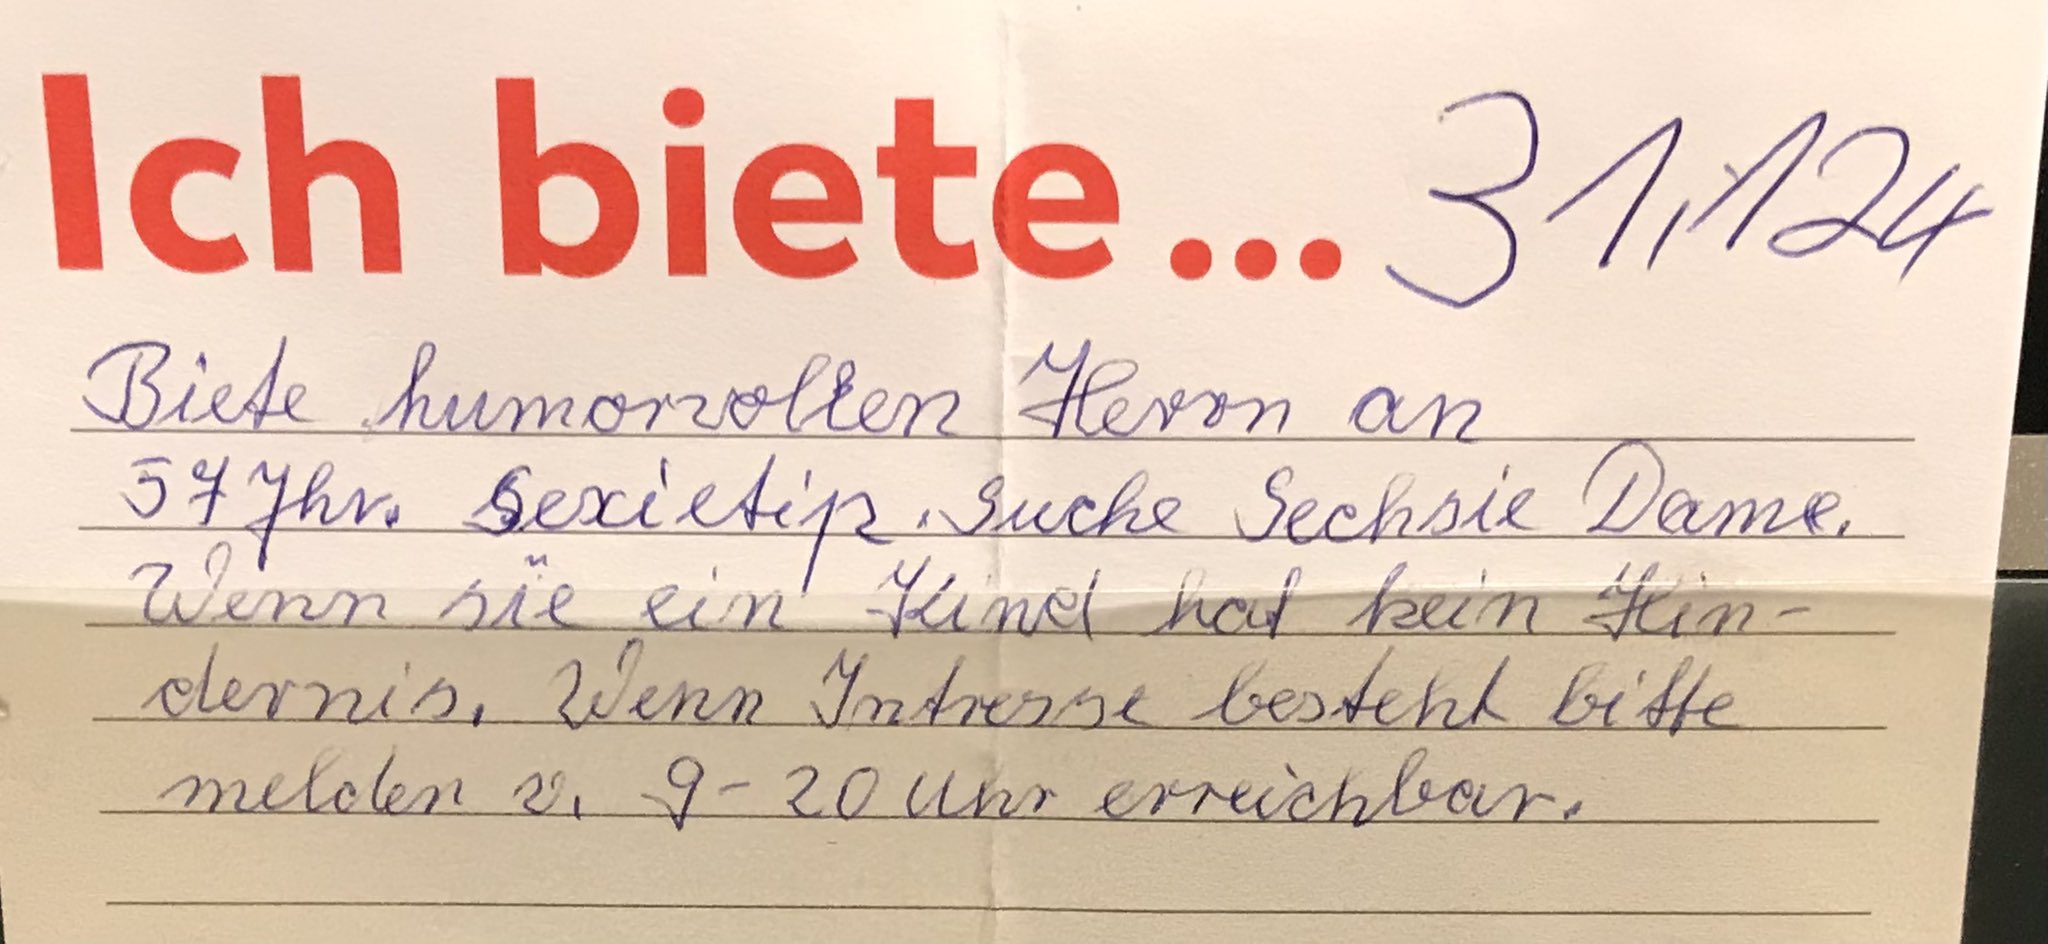 Ich biete... 31,124
Biete humorvollen Herrn an
57 Jhr. Sexietip. Suche Sechsie Dame.
Wenn sie ein Kind hat kein Hin-
dernis. Wenn Intresse besteht bitte
melden v. 9-20 Uhr erreichbar.